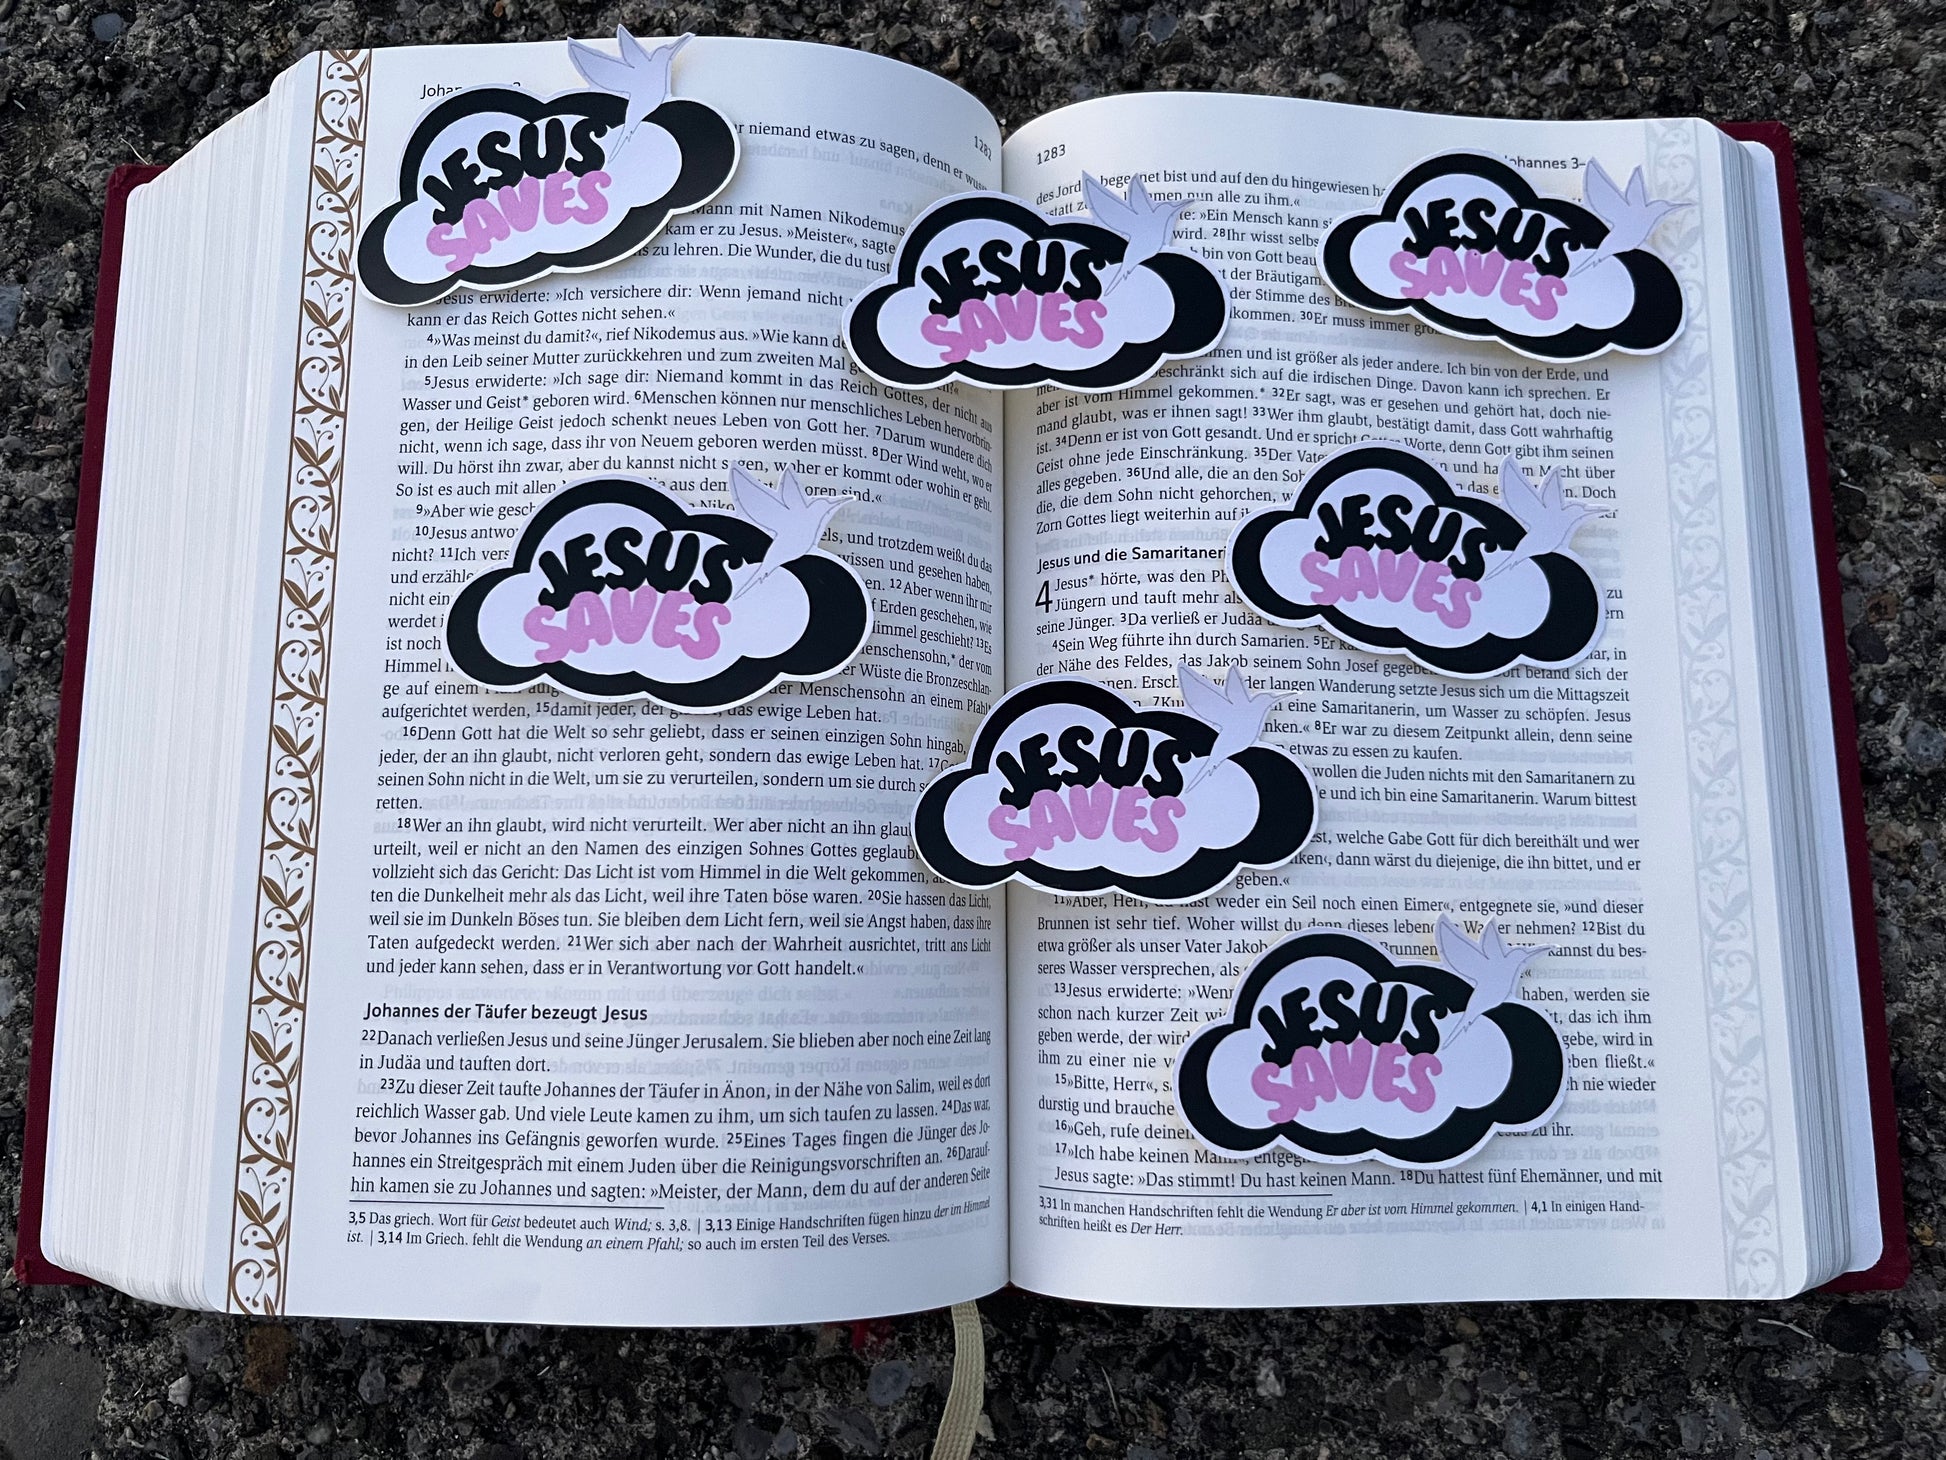 1282
r niemand etwas zu sagen, denn er wuss
JESUS
SAVES
Mann mit Namen Nikodemus
kam er zu Jesus. »Meister«, sagte
zu lehren. Die Wunder, die du tust
Jesus erwiderte: »Ich versichere dir: Wenn jemand nicht
kann er das Reich Gottes nicht sehen.«
4»Was meinst du damit?«, rief Nikodemus aus. »Wie kann
in den Leib seiner Mutter zurückkehren und zum zweiten Mal
5Jesus erwiderte: »Ich sage dir: Niemand kommt in das Reich Gottes, der nicht aus
Wasser und Geist* geboren wird. 6Menschen können nur menschliches Leben hervorbrin-
gen, der Heilige Geist jedoch schenkt neues Leben von Gott her. 7Darum wundere dich
nicht, wenn ich sage, dass ihr von Neuem geboren werden müsst. 8Der Wind weht, wo er
will. Du hörst ihn zwar, aber du kannst nicht sagen, woher er kommt oder wohin er geht.
So ist es auch mit allen aus dem oren sind.«
9»Aber wie gesch Niko
10Jesus antwo els, und trotzdem weißt du das
nicht? 11Ich vers wissen und gesehen haben,
und erzähle en. 12Aber wenn ihr mir
nicht ein f Erden geschehen, wie
werdet i Himmel geschieht? 13Es
ist noch Menschensohn,* der vom
Himmel er Wüste die Bronzeschlan-
ge auf einem der Menschensohn an einem Pfahl
aufgerichtet werden, 15damit jeder, der das ewige Leben hat.
JESUS
SAVES
16Denn Gott hat die Welt so sehr geliebt, dass er seinen einzigen Sohn hingab,
jeder, der an ihn glaubt, nicht verloren geht, sondern das ewige Leben hat. 17
seinen Sohn nicht in die Welt, um sie zu verurteilen, sondern um sie durch
retten.
18Wer an ihn glaubt, wird nicht verurteilt. Wer aber nicht an ihn glau
urteilt, weil er nicht an den Namen des einzigen Sohnes Gottes geglaubt
vollzieht sich das Gericht: Das Licht ist vom Himmel in die Welt gekommen,
ten die Dunkelheit mehr als das Licht, weil ihre Taten böse waren. 20Sie hassen das Licht,
weil sie im Dunkeln Böses tun. Sie bleiben dem Licht fern, weil sie Angst haben, dass ihre
Taten aufgedeckt werden. 21Wer sich aber nach der Wahrheit ausrichtet, tritt ans Licht
und jeder kann sehen, dass er in Verantwortung vor Gott handelt.«
Johannes der Täufer bezeugt Jesus
22Danach verließen Jesus und seine Jünger Jerusalem. Sie blieben aber noch eine Zeit lang
in Judäa und tauften dort.
23Zu dieser Zeit taufte Johannes der Täufer in Änon, in der Nähe von Salim, weil es dort
reichlich Wasser gab. Und viele Leute kamen zu ihm, um sich taufen zu lassen. 24Das war,
bevor Johannes ins Gefängnis geworfen wurde. 25Eines Tages fingen die Jünger des Jo-
hannes ein Streitgespräch mit einem Juden über die Reinigungsvorschriften an. 26Darauf-
hin kamen sie zu Johannes und sagten: »Meister, der Mann, dem du auf der anderen Seite
3,5 Das griech. Wort für Geist bedeutet auch Wind; s. 3,8. | 3,13 Einige Handschriften fügen hinzu der im Himmel
ist. | 3,14 Im Griech. fehlt die Wendung an einem Pfahl; so auch im ersten Teil des Verses.
JESUS
SAVES
1283
Johannes 3–
des Jord bege net bist und auf den du hingewiesen
statt men nun alle zu ihm.«
te: »Ein Mensch kann
wird. 28Ihr wisst selbs
bin von Gott beau
t der Bräutigam
der Stimme des
kommen. 30Er muss immer
JESUS
SAVES
men und ist größer als jeder andere. Ich bin von der Erde, und
beschränkt sich auf die irdischen Dinge. Davon kann ich sprechen. Er
aber ist vom Himmel gekommen.* 32Er sagt, was er gesehen und gehört hat, doch nie-
mand glaubt, was er ihnen sagt! 33Wer ihm glaubt, bestätigt damit, dass Gott wahrhaftig
ist. 34Denn er ist von Gott gesandt. Und er spricht Gottes Worte, denn Gott gibt ihm seinen
Geist ohne jede Einschränkung. 35Der Vate und hat Macht über
alles gegeben. 36Und alle, die an den Soh das e en. Doch
die, die dem Sohn nicht gehorchen,
Zorn Gottes liegt weiterhin auf
JESUS
SAVES
Jesus und die Samariteri
4 Jesus* hörte, was den Ph zu
Jüngern und tauft mehr als ern
seine Jünger. 3Da verließ er Judäa
4Sein Weg führte ihn durch Samarien. 5Er ar, in
der Nähe des Feldes, das Jakob seinem Sohn Josef gegeben ort befand sich der
nen. Ersch von der langen Wanderung setzte Jesus sich um die Mittagszeit
7 eine Samariterin, um Wasser zu schöpfen. Jesus
nken.« 8Er war zu diesem Zeitpunkt allein, denn seine
etwas zu essen zu kaufen.
wollen die Juden nichts mit den Samaritanern zu
e und ich bin eine Samariterin. Warum bittest
JESUS
SAVES
st, welche Gabe Gott für dich bereithält und wer
nken‹, dann wärst du diejenige, die ihn bittet, und er
geben.«
11»Aber, Herr, du hast weder ein Seil noch einen Eimer«, entgegnete sie, »und dieser
Brunnen ist sehr tief. Woher willst du denn dieses leben Wasser nehmen? 12Bist du
etwa größer als unser Vater Jakob Brunnen kannst du bes-
seres Wasser versprechen, als
13Jesus erwiderte: »Wenn haben, werden sie
schon nach kurzer Zeit wi t, das ich ihm
geben werde, der wird gebe, wird in
ihm zu einer nie v ben fließt.«
15»Bitte, Herr«, s h nie wieder
durstig und brauche
16»Geh, rufe deinen zu ihr.
17»Ich habe keinen Mann«, entgeg
Jesus sagte: »Das stimmt! Du hast keinen Mann. 18Du hattest fünf Ehemänner, und mit
JESUS
SAVES
3,31 In manchen Handschriften fehlt die Wendung Er aber ist vom Himmel gekommen. | 4,1 In einigen Hand-
schriften heißt es Der Herr.